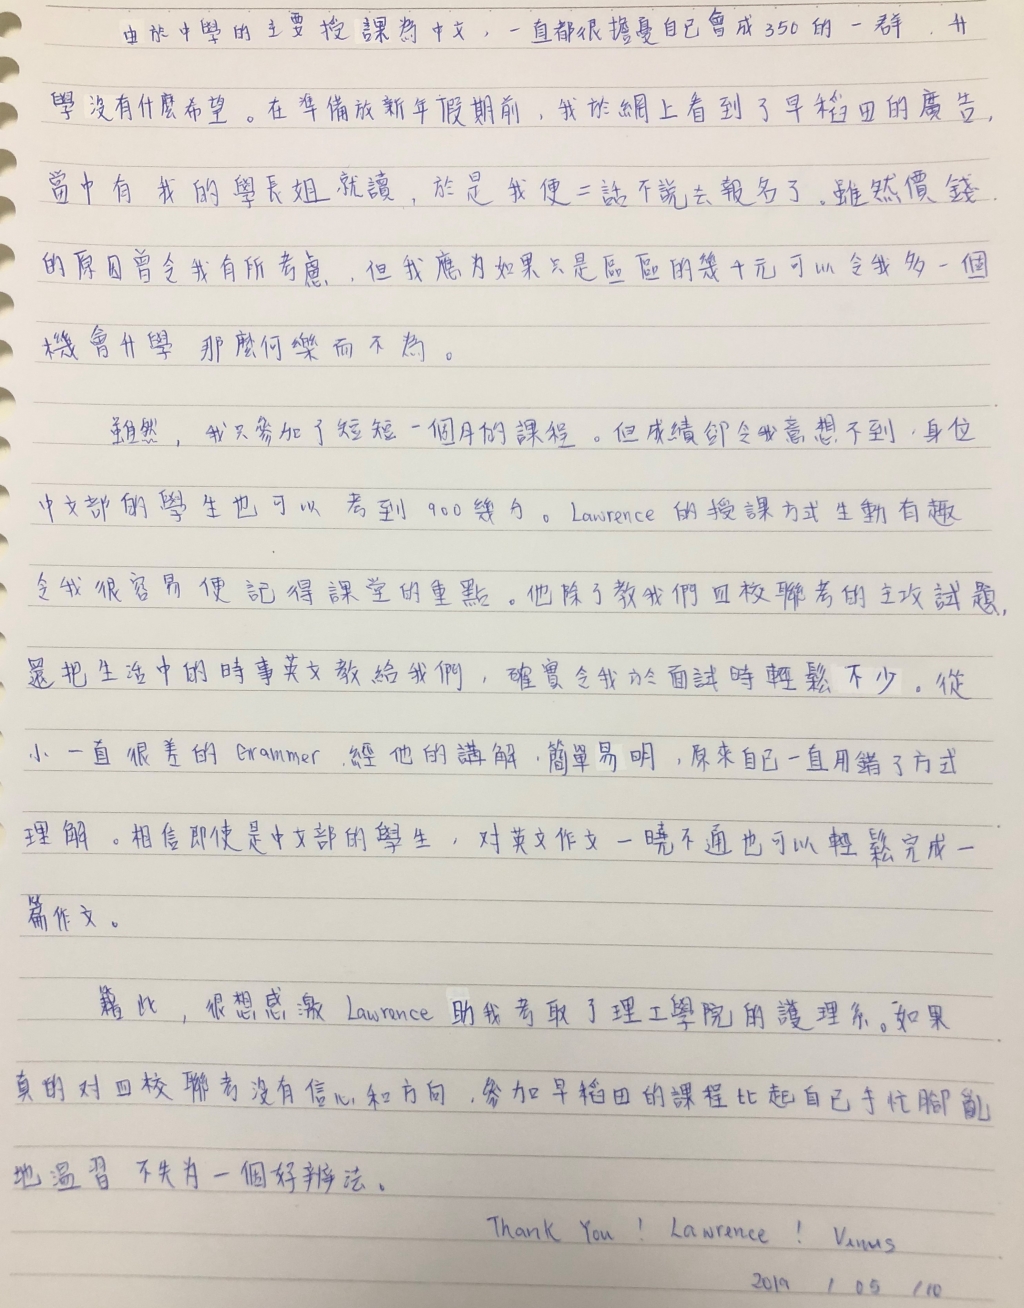 由於中學的主要授課為中文，一直都很擔憂自己會成350的一群，升
學沒有什麼希望。在準備放新年假期前，我於網上看到了早稻田的廣告，
當中有我的學長姐就讀，於是我便二話不說去報名了。雖然價錢
的原因曾令我有所考慮，但我應为如果只是區區的幾千元可以令我多一個
機會升學 那麼何樂而不為。
雖然，我只參加了短短一個月的課程。但成績卻令我意想不到，身位
中文部的學生也可以考到900幾分。Lawrence的授課方式生動有趣
令我很容易便記得課堂的重點。他除了教我們四校聯考的主攻試題，
還把生活中的時事英文教給我們，確實令我於面試時輕鬆不少。從
小一直很差的Grammer，經他的講解，簡單易明，原來自己一直用錯了方式
理解。相信即使是中文部的學生，对英文作文一曉不通也可以輕鬆完成一
篇作文。
藉此，很想感激Lawrence助我考取了理工學院的護理系。如果
真的对四校聯考沒有信心和方向，參加早稻田的課程比起自己手忙腳亂
地溫習 不失为一個好辦法。
Thank You ! Lawrence ! Venus
2019 / 05 / 10